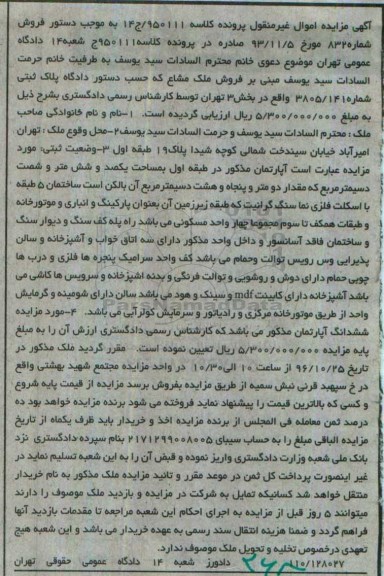 آگهی مزایده اموال غیرمنقول پرونده کلاسه ۹۵۰۱۱۱/ج۱۴ به موجب دستور فروش
شماره۸۳۲ مورخ ۹۳/۱۱/۵ صادره در پرونده کلاسه۹۵۰۱۱۱ج شعبه۱۴ دادگاه
عمومی تهران موضوع دعوی خانم محترم السادات سید یوسف به طرفیت خانم حرمت
السادات سید یوسف مبنی بر فروش ملک مشاع که حسب دستور دادگاه پلاک ثبتی
شماره۳۸۰۵/۱۴۱۰ واقع در بخش۳ تهران توسط کارشناس رسمی دادگستری بشرح ذیل
به مبلغ ۵/۳۰۰/۰۰۰/۰۰۰ ریال ارزیابی گردیده است. ۱-نام و نام خانوادگی صاحب
ملک : محترم السادات سید یوسف و حرمت السادات سید یوسف۲-محل وقوع ملک : تهران
امیرآباد خیابان سیندخت شمالی کوچه شیدا پلاک۱۹ طبقه اول ۳-وضعیت ثبتی: مورد
مزایده عبارت است آپارتمان مذکور در طبقه اول بمساحت یکصد و شش متر و شصت
دسیمترمربع که مقدار دو متر و پنجاه و هشت دسیمترمربع آن بالکن است ساختمان ۵ طبقه
با اسکلت فلزی نما سنگ گرانیت که طبقه زیرزمین آن بعنوان پارکینگ و انباری و موتورخانه
و طبقات همکف تا سوم مجموعا چهار واحد مسکونی می باشد راه پله کف سنگ و دیوار سنگ
و ساختمان فاقد آسانسور و داخل واحد مذکور دارای سه اتاق خواب و آشپزخانه و سالن
پذیرایی وس رویس توالت وحمام می باشد کف واحد سرامیک پنجره ها فلزی و درب ها
چوبی حمام دارای دوش و روشویی و توالت فرنگی و بدنه اشپزخانه و سرویس ها کاشی می
باشد آشپزخانه دارای کابینت mdf و سینک و هود می باشد سالن دارای شومینه و گرمایش
واحد از طریق موتورخانه مرکزی و رادیاتور و سرمایش کولرآبی می باشد. ۴-مورد مزایده
ششدانگ آپارتمان مذکور می باشد که کارشناس رسمی دادگستری ارزش آن را به مبلغ
پایه مزایده ۵/۳۰۰/۰۰۰/۰۰۰ ریال تعیین نموده است. مقرر گردید ملک مذکور در
تاریخ ۹۶/۱۰/۲۵ از ساعت ۱۰ الی۱۰/۳۰ در واحد مزایده مجتمع شهید بهشتی واقع
در خ سپهبد قرنی نبش سمیه از طریق مزایده بفروش برسد مزایده از قیمت پایه شروع
و کسی که بالاترین قیمت را پیشنهاد نماید فروخته می شود برنده مزایده خواهد بود ده
درصد ثمن معامله فی المجلس از برنده مزایده اخذ و خریدار باید ظرف یکماه از تاریخ
مزایده الباقی مبلغ را به حساب سیبای ۲۱۷۱۲۹۹۰۰۸۰۰۵ بنام سپرده دادگستری نزد
بانک ملی شعبه وزارت دادگستری واریز نموده و قبض آن را به این شعبه تسلیم نماید در
غیر اینصورت پرداخت کل ثمن در موعد مقرر و تائید مزایده ملک مذکور به نام خریدار
منتقل خواهد شد کسانیکه تمایل به شرکت در مزایده و بازدید ملک موصوف را دارند
میتوانند ۵ روز قبل از مزایده به اجرای احکام این شعبه مراجعه تا مقدمات بازدید آنها
فراهم گردد و ضمنا هزینه انتقال سند رسمی به عهده خریدار می باشد و این شعبه هیچ
تعهدی درخصوص تخلیه و تحویل ملک موصوف ندارد.
۱۱۰/۱۲۸۰۲۷ دادورز شعبه ۱۴ دادگاه عمومی حقوقی تهران